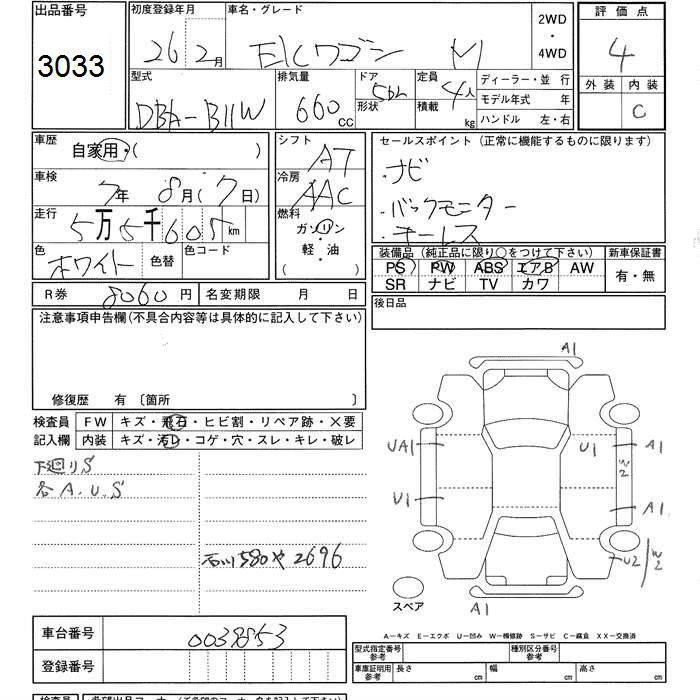 出品番号 初度登録年月 車名・グレード 2WD・4WD 評価点
3033 26 2月 EKワゴン M 4
型式 排気量 ドア形状 定員積載 ディーラー・並行 外装 内装
DBA-B11W 660cc 5DL 4人 kg モデル年式 年 C
ハンドル 左・右
車歴 自家用・( ) シフト AT セールスポイント (正常に機能するものに限ります)
車検 7年 8月(7日) 冷房 AAC ・ナビ
走行 5万5千605km 燃料 ガソリン・軽・油 ・バックモニター
色 ホワイト 色替 色コード ・キーレス
装備品 (純正品に限り○をつけて下さい) 新車保証書
PS PW ABS エアB AW 有・無
SR ナビ TV カワ
R券 8060円 名変期限 月 日 後日品
注意事項申告欄(不具合内容等は具体的に記入して下さい)
修復歴 有 〔箇所 〕
検査員 FW キズ・飛石・ヒビ割・リペア跡・×要
記入欄 内装 キズ・汚レ・コゲ・穴・スレ・キレ・破レ
下廻りS
各A.U.S
石川580や2696
A1
UA1 U1 W2 A1
U1 A1
U2 W2
A1
スペア
A-キズ E-エクボ U-凹み W-補修跡 S-サビ C-腐食 XX-交換済
車台番号 0038853
登録番号
型式指定番号 参考 種別区分番号 参考
車庫証明用 参考 長さ cm 幅 cm 高さ cm